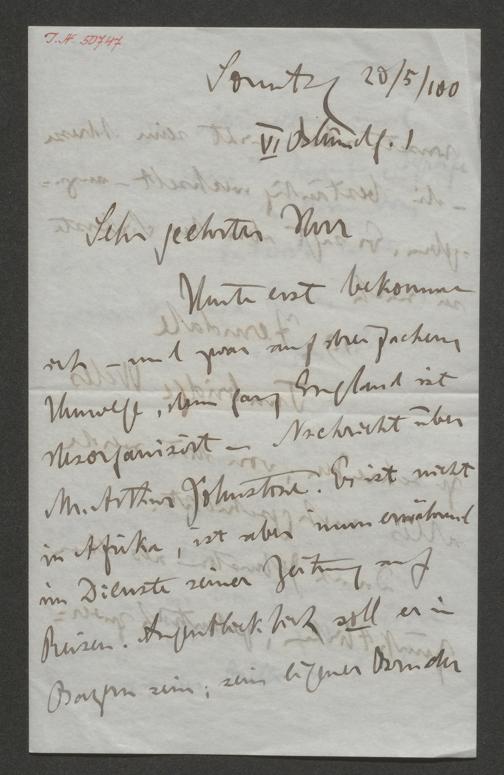 I.N. 50747
Sonntag 20/5/100
VI
Sehr geehrter Herr
Heute erst bekomme
ich – und zwar auf dreifachem
Umwege, denn ganz England ist
desorganisirt – Nachricht über
Mr. Arthur Johnstone. Er ist nicht
in Afrika, ist aber immerwährend
im Dienste seiner Zeitung auf
Reisen. Augenblicklich soll er in
Bayern sein; sein eigener Bruder